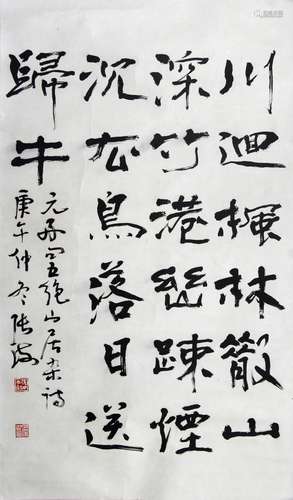 川迴楓林散山
深竹港幽疎煙
沉去鳥落日送
歸牛
元好问五絕山居杂詩
庚午仲冬張